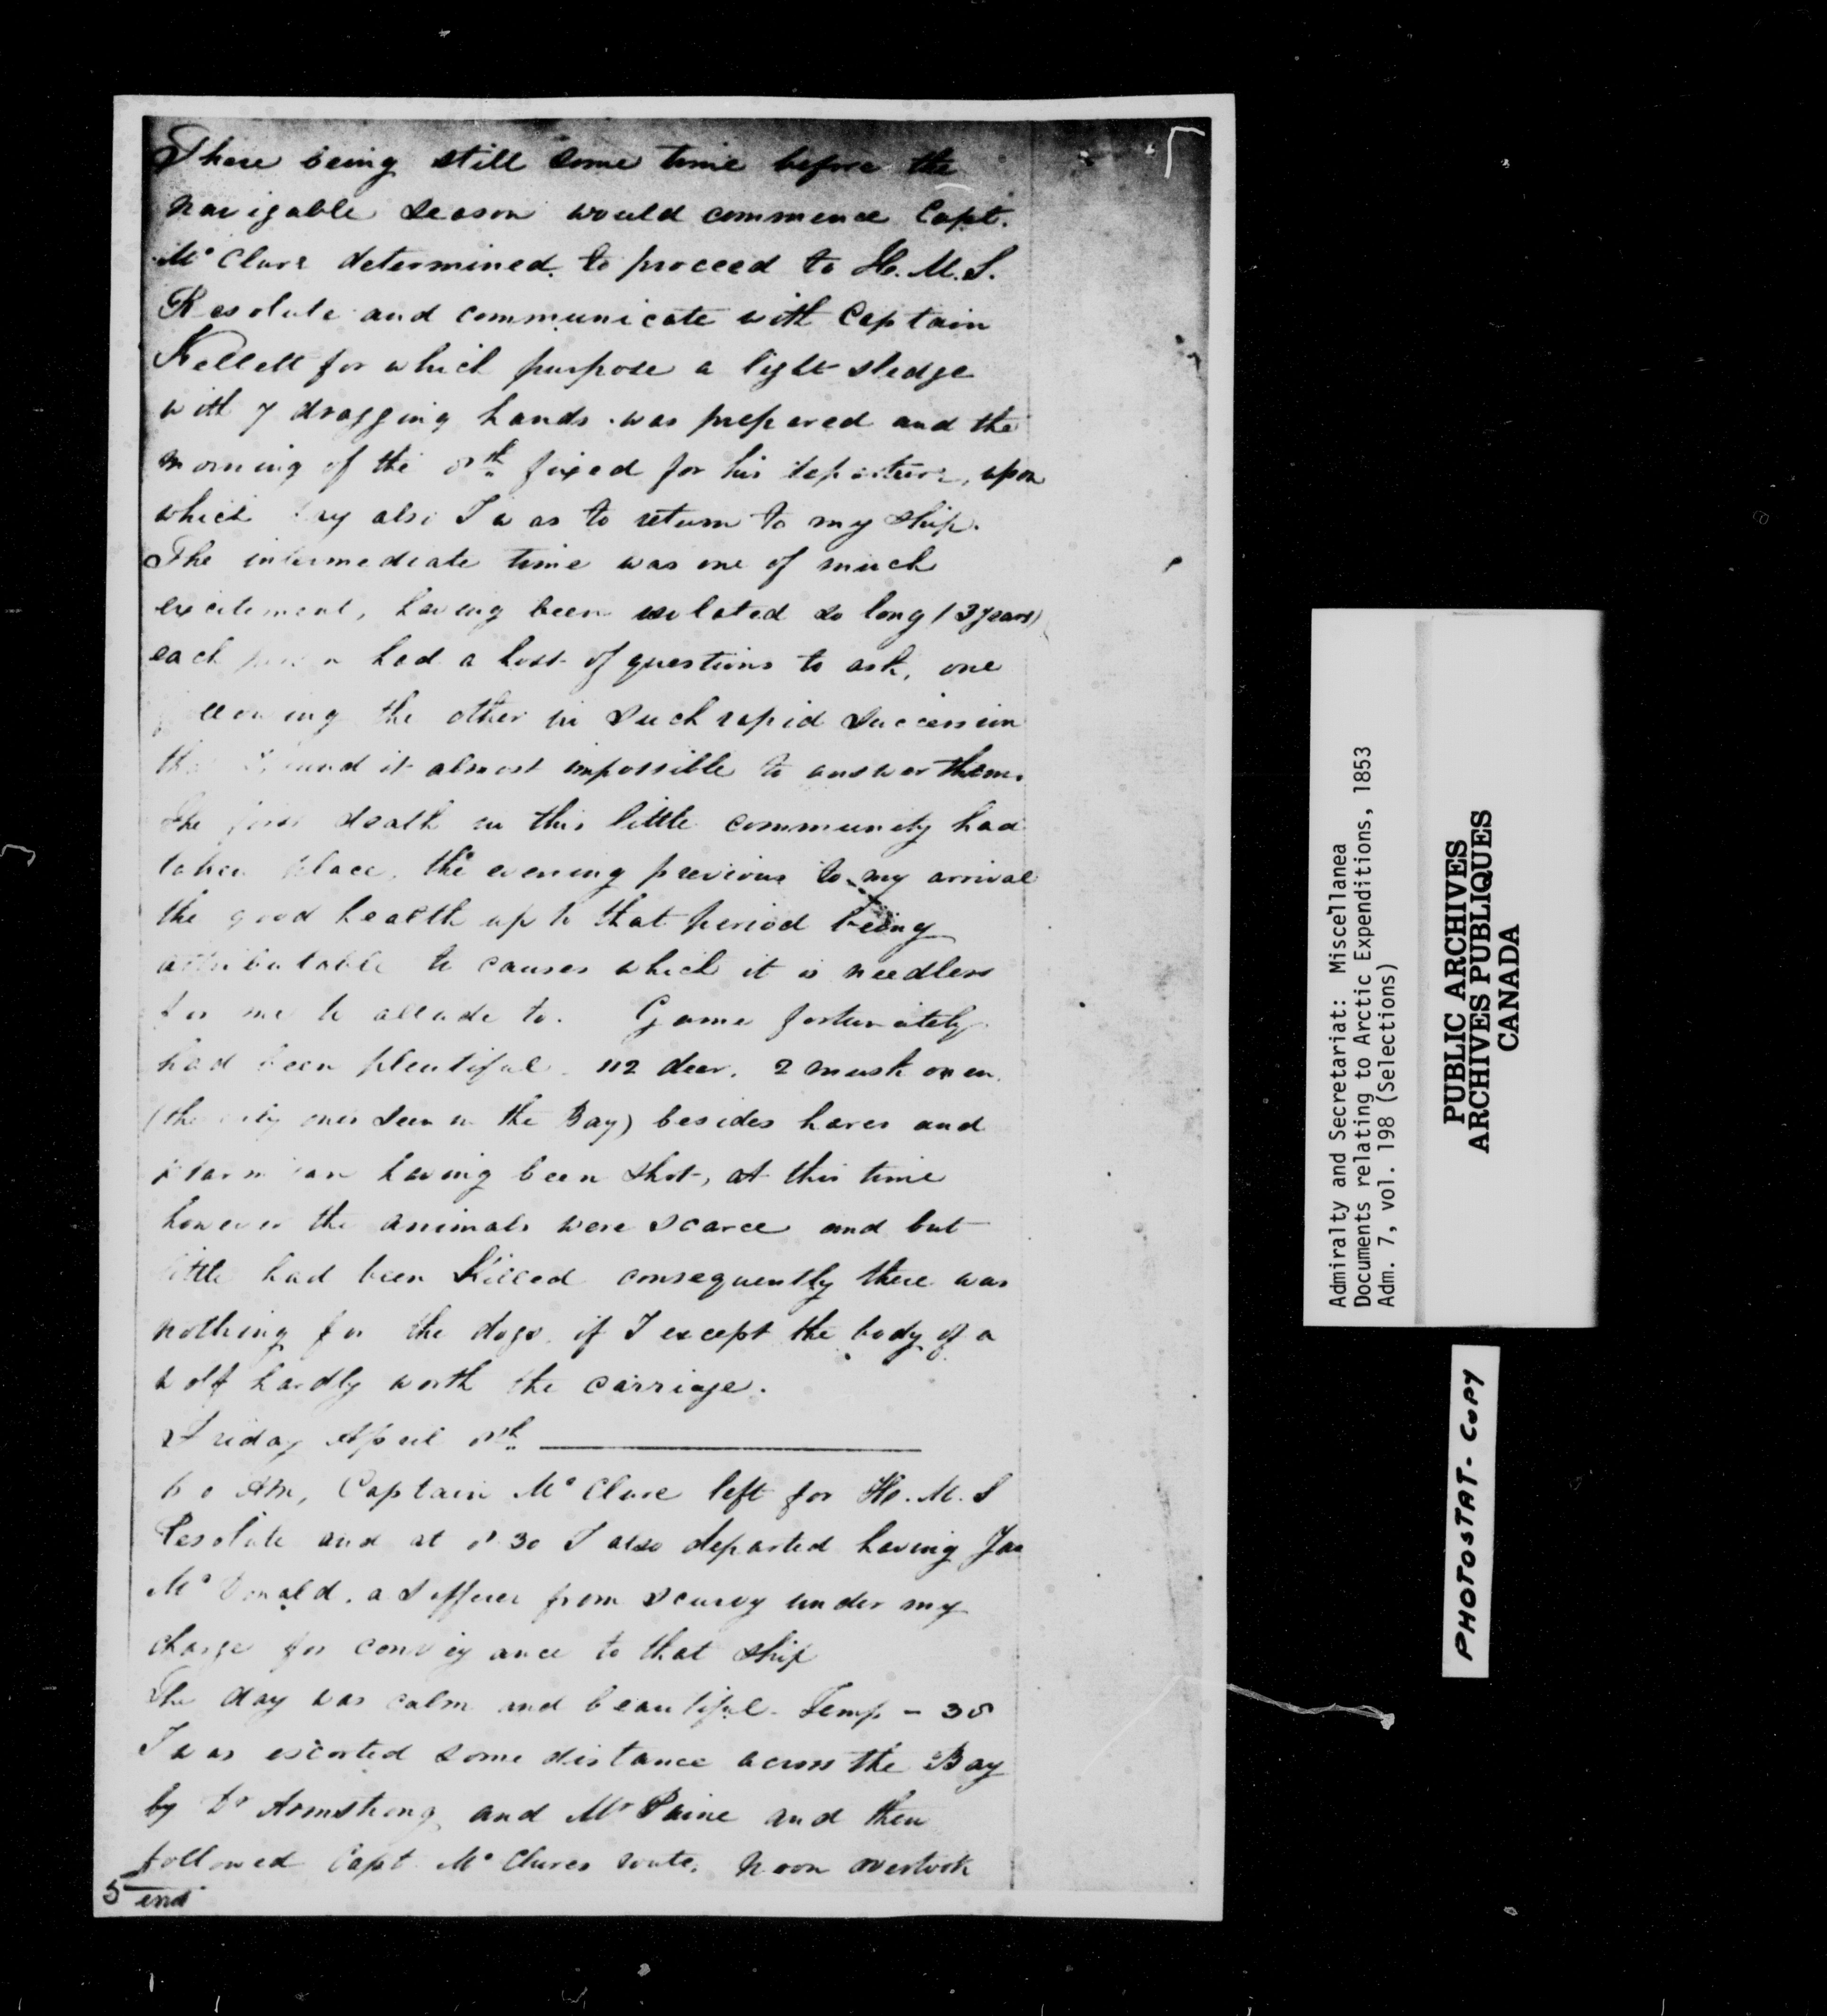 There being still some time before the
navigable season would commence Capt.
McClure determined to proceed to H.M.S.
Resolute and communicate with Captain
Kellett for which purpose a light sledge
with 7 dragging hands was prepared and the
morning of the 8th fixed for his departure, upon
which day also I was to return to my ship.
The intermediate time was one of much
excitement, having been isolated so long (3 years)
each had a host of questions to ask, one
following the other in such rapid succession
that I found it almost impossible to answer them.
The first death in this little community had
taken place, the evening previous to my arrival
the good health up to that period being
attributable to causes which it is needless
for me to allude to. Game fortunately
had been plentiful. 112 deer, 2 musk oxen,
(the only ones seen in the Bay) besides hares and
ptarmigan having been shot, at this time
however the animals were scarce and but
little had been killed consequently there was
nothing for the dogs, if I except the body of a
wolf hardly worth the carriage.
Friday April 8th
Am, Captain McClure left for H.M.S
Resolute and at 8 30 I also departed having Jas
McDonald, a sufferer from scurvy under my
charge for conveyance to that ship
The day was calm and beautiful. Temp - 38
I was escorted some distance across the Bay
by Dr Armstrong, and Mr Paine and then
followed Capt McClures route. Noon overtook
5 end
Admiralty and Secretariat: Miscellanea
Documents relating to Arctic Expenditions, 1853
Adm. 7, vol. 198 (Selections)
PUBLIC ARCHIVES
ARCHIVES PUBLIQUES
CANADA
PHOTOSTAT-COPY